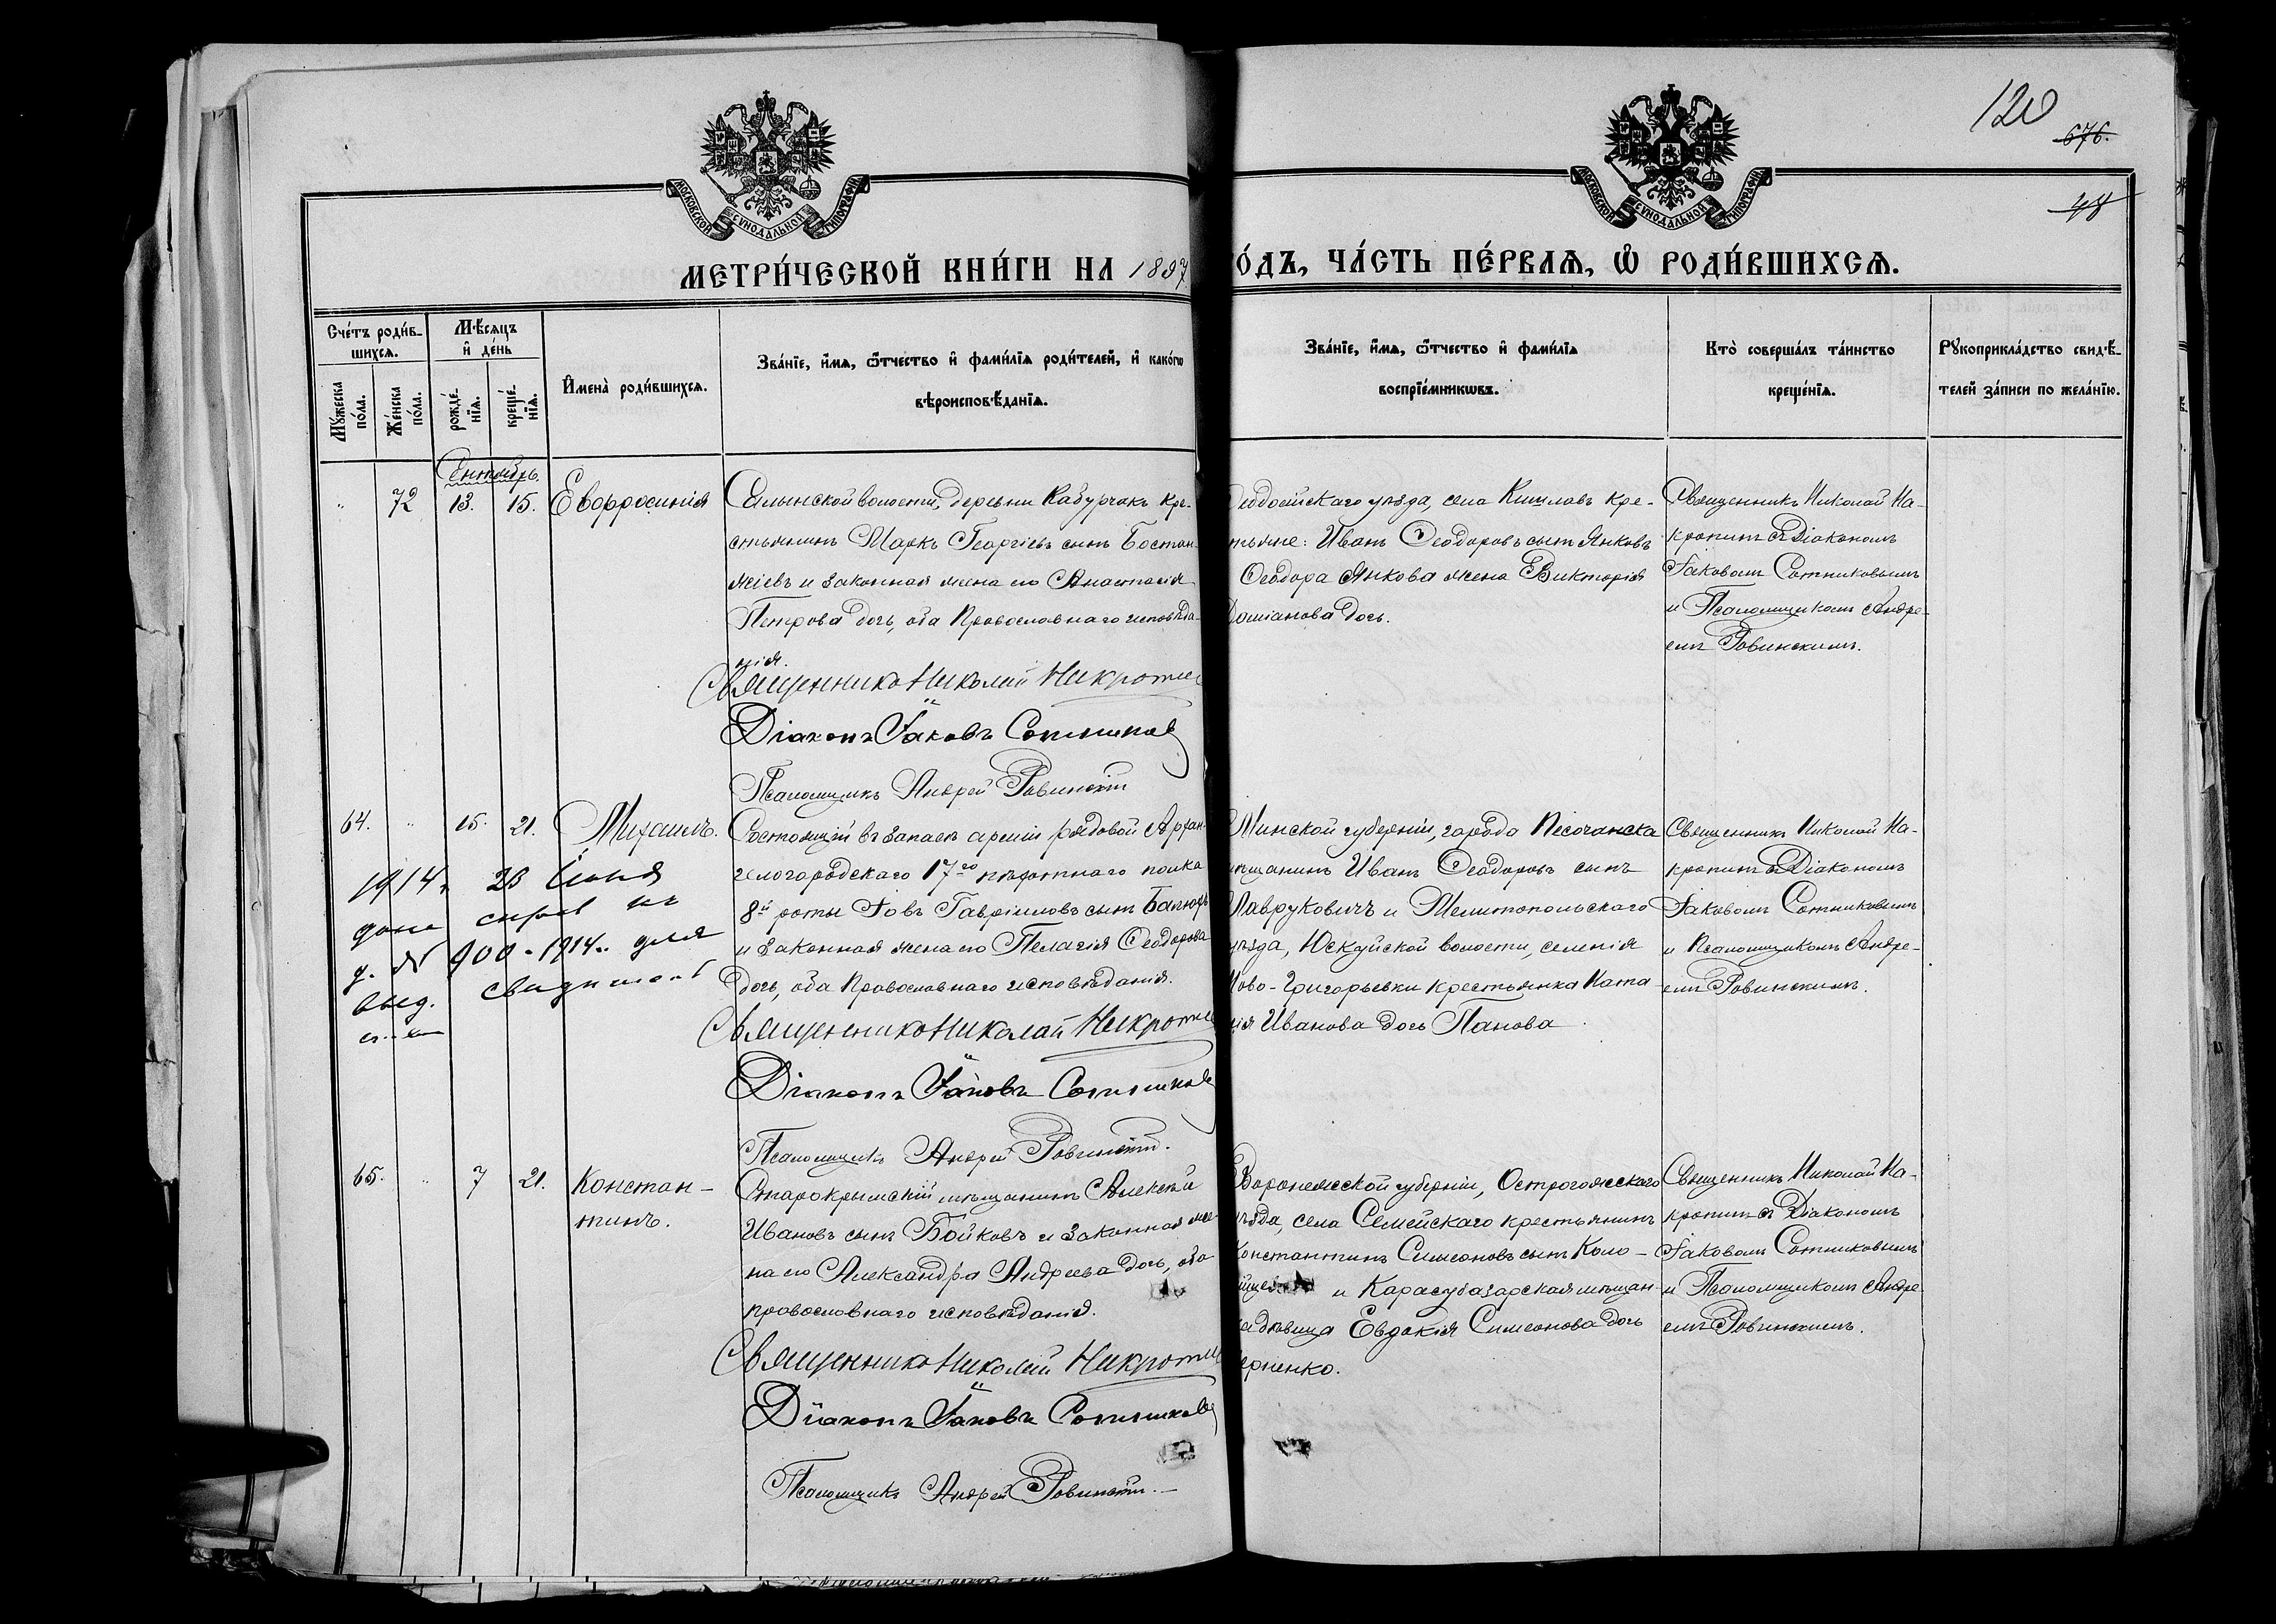 120
676.
48
МОСКОВСКОЙ СѴНОДАЛЬНОЙ ТИПОГРАФІИ
МОСКОВСКОЙ СѴНОДАЛЬНОЙ ТИПОГРАФІИ
МЕТРИ́ЧЕСКОЙ КНИ́ГИ НА 1897
О́ДЪ, ЧА́СТЬ ПЕ́РВАѦ, Ѡ РОДИ́ВШИХСѦ.
Сче́тъ роди́в-
шихсѧ.
Мꙋжеска по́ла.
Же́нска по́ла.
Мѣ́сѧцъ
и҆ де́нь
рожде́-
нїѧ.
креще́-
нїѧ.
И҆мена̀ роди́вшихсѧ.
Зва́нїе, и҆́мѧ, ѻ҆́тчество и҆ фами́лїѧ роди́телей, и҆ како́гѡ
вѣроисповѣ́данїѧ.
Зва́нїе, и҆́мѧ, ѻ҆́тчество и҆ фами́лїѧ
воспрїе́мникѡвъ.
Кто̀ соверша́лъ та́инство
креще́нїѧ.
Рꙋкоприкла́дство свидѣ́-
телей за́писи по жела́нїю.
Сентябрь.
72 13. 15. Евфросинія
Салынской волости, деревни Кабурчак кре-
стьянинъ Маркъ Георгіевъ сынъ Бостан-
жіевъ и законная жена его Анастасія
Петрова дочь, оба Православнаго исповѣда-
нія.
Священникъ Николай Накропин
Діаконъ Іаковъ Сотников
Псаломщикъ Андрей Ровинскій
Ѳеодосійскаго уѣзда, села Кишлавъ кре-
стьяне: Иванъ Ѳеодоровъ сынъ Янковъ
Ѳеодора Янкова жена Викторія
Даміанова дочь.
Священникъ Николай На-
кропинъ съ Діакономъ
Іаковомъ Сотниковымъ
и Псаломщикомъ Андре-
емъ Ровинскимъ.
64. 15. 21. Михаилъ.
1914 г. 23 Іюня
дана справ на
д. № 900-1914 г. для
выд. свидѣтел
Состоящій въ запасѣ арміи рядовой Архан-
гелогородскаго 17го пѣхотнаго полка
8й роты Іовъ Гавріиловъ сынъ
и законная жена его Пелагія Ѳеодорова
дочь, оба Православнаго исповѣданія.
Священникъ Николай Накропин
Діаконъ Іаковъ Сотников
Псаломщикъ Андрей Ровинскій.
Минской губерніи, города Песочанска
мѣщанинъ Иванъ Ѳеодоровъ сынъ
Лаврукович и Мелитопольскаго
уѣзда, Юскуйской волости, селенія
Ново-Григорьевки крестьянка Ната
лія Иванова дочь Панова.
Священникъ Николай На-
кропинъ съ Діакономъ
Іаковомъ Сотниковымъ
и Псаломщикомъ Андре-
емъ Ровинскимъ.
65. 7 21. Констан-
тинъ.
Старокрымскій мѣщанинъ Алексѣй
Ивановъ сынъ Бойковъ и законная же
на его Александра Андреева дочь, оба
православнаго исповѣданія.
Священникъ Николай Накропин
Діаконъ Іаковъ Сотников
Псаломщикъ Андрей Ровинскій.
Воронежской губерніи, Острогожскаго
уѣзда, села Семейскаго крестьянинъ
Константинъ Симеоновъ сынъ Коло-
и Карасубазарская мѣщан-
ка дѣвица Евдокія Симеонова дочь
Священникъ Николай На-
кропинъ съ Діакономъ
Іаковомъ Сотниковымъ
и Псаломщикомъ Андре
емъ Ровинскимъ.